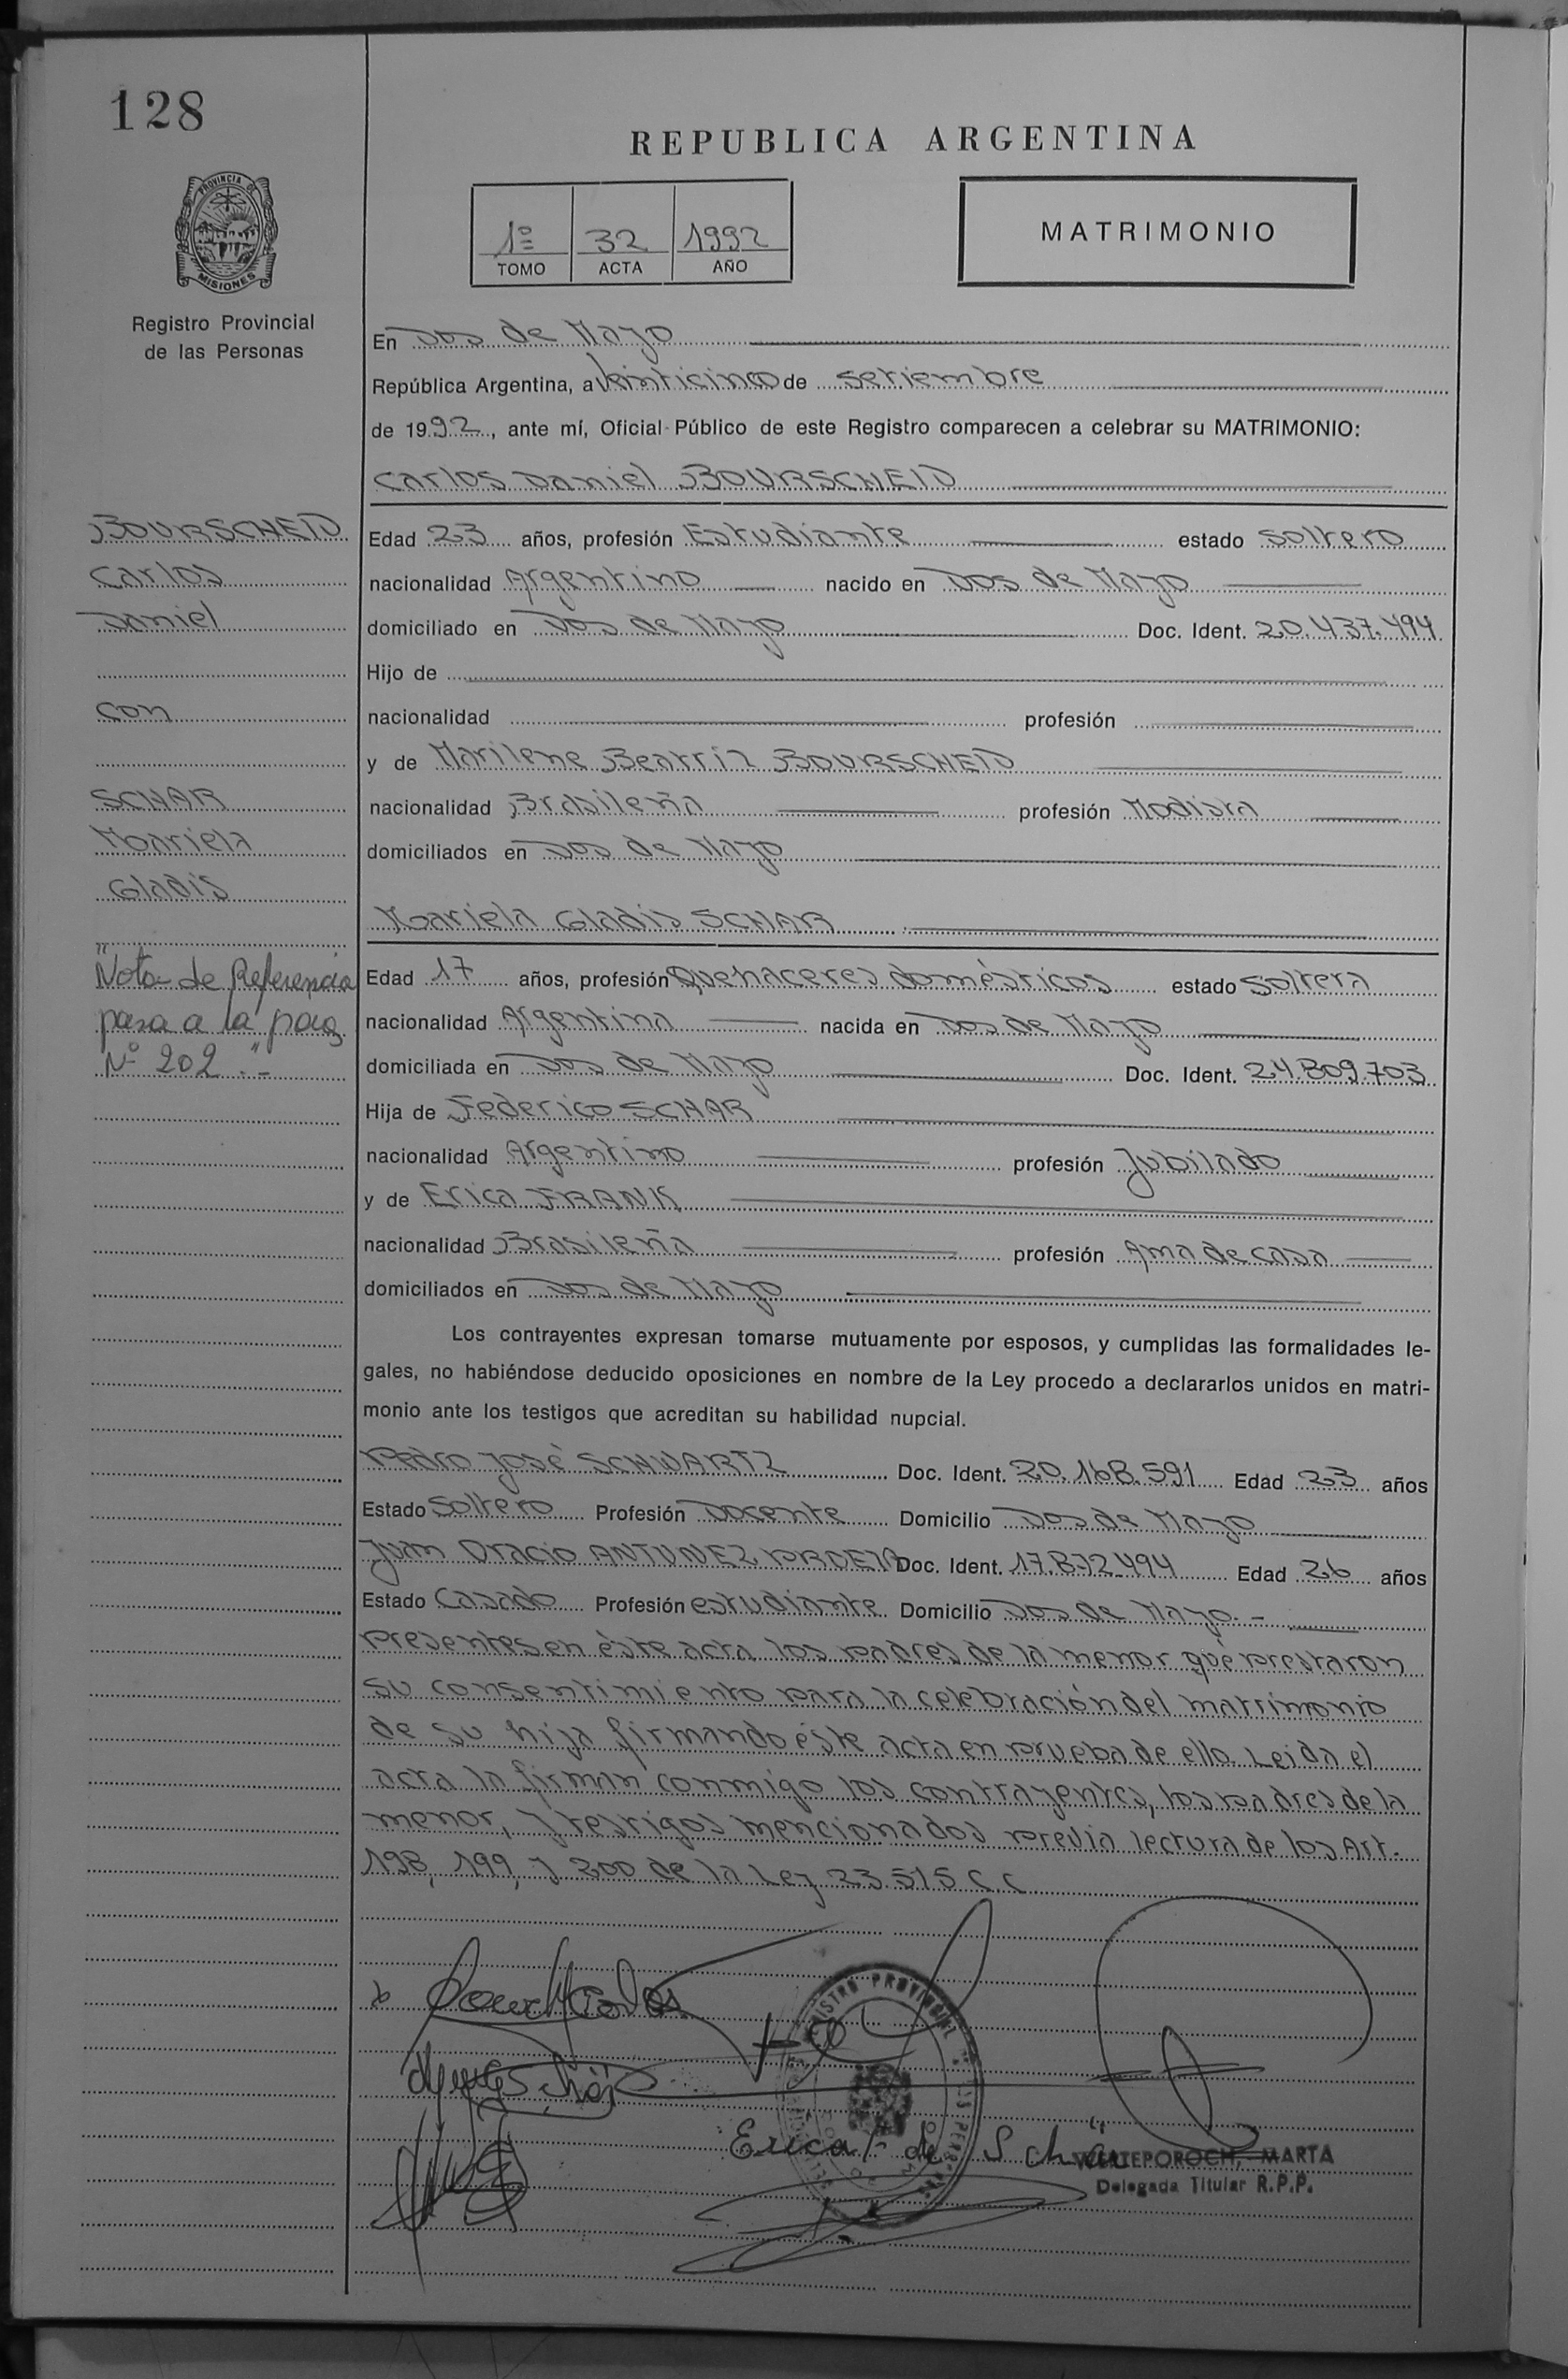 128
REPUBLICA ARGENTINA
PROVINCIA DE
MISIONES
Registro Provincial
de las Personas
1º 32 1992
TOMO ACTA AÑO
MATRIMONIO
En Dos de Mayo
República Argentina, a Veinticinco de setiembre
de 1992, ante mí, Oficial Público de este Registro comparecen a celebrar su MATRIMONIO:
Carlos Daniel BOURSCHEID
BOURSCHEID
Carlos
Daniel
con
SCHAR
Mariela
Gladis
"Nota de Referencia
pasa a la pag.
Nº 202 ".-
Edad 23 años, profesión Estudiante estado soltero
nacionalidad Argentino nacido en Dos de Mayo
domiciliado en Dos de Mayo Doc. Ident. 20.437.494
Hijo de
nacionalidad profesión
y de Marilene Beatriz BOURSCHEID
nacionalidad Brasileña profesión Modista
domiciliados en Dos de Mayo
Mariela Gladis SCHAR
Edad 17 años, profesión Quehaceres domésticos estado soltera
nacionalidad Argentina nacida en Dos de Mayo
domiciliada en Dos de Mayo Doc. Ident. 24.809.703
Hija de Federico SCHAR
nacionalidad Argentino profesión Jubilado
y de Erica FRANK
nacionalidad Brasileña profesión Ama de casa
domiciliados en Dos de Mayo
Los contrayentes expresan tomarse mutuamente por esposos, y cumplidas las formalidades le-
gales, no habiéndose deducido oposiciones en nombre de la Ley procedo a declararlos unidos en matri-
monio ante los testigos que acreditan su habilidad nupcial.
Pedro José SCHWARTZ Doc. Ident. 20.168.591 Edad 23 años
Estado soltero Profesión Docente Domicilio Dos de Mayo
Juan Oracio ANTUNEZ Doc. Ident. 17.872.494 Edad 26 años
Estado Casado Profesión estudiante Domicilio Dos de Mayo.-
Presentes en éste acta los padres de la menor que prestaron
su consentimiento para la celebración del matrimonio
de su hija firmando éste acta en prueba de ello. Leida el
acta la firman conmigo los contrayentes, los padres de la
menor, y testigos mencionados previa lectura de los Art.
198, 199, y 200 de la Ley 23.515 C.C
Erica F. de Schär
MARTA
Delegada Titular R.P.P.